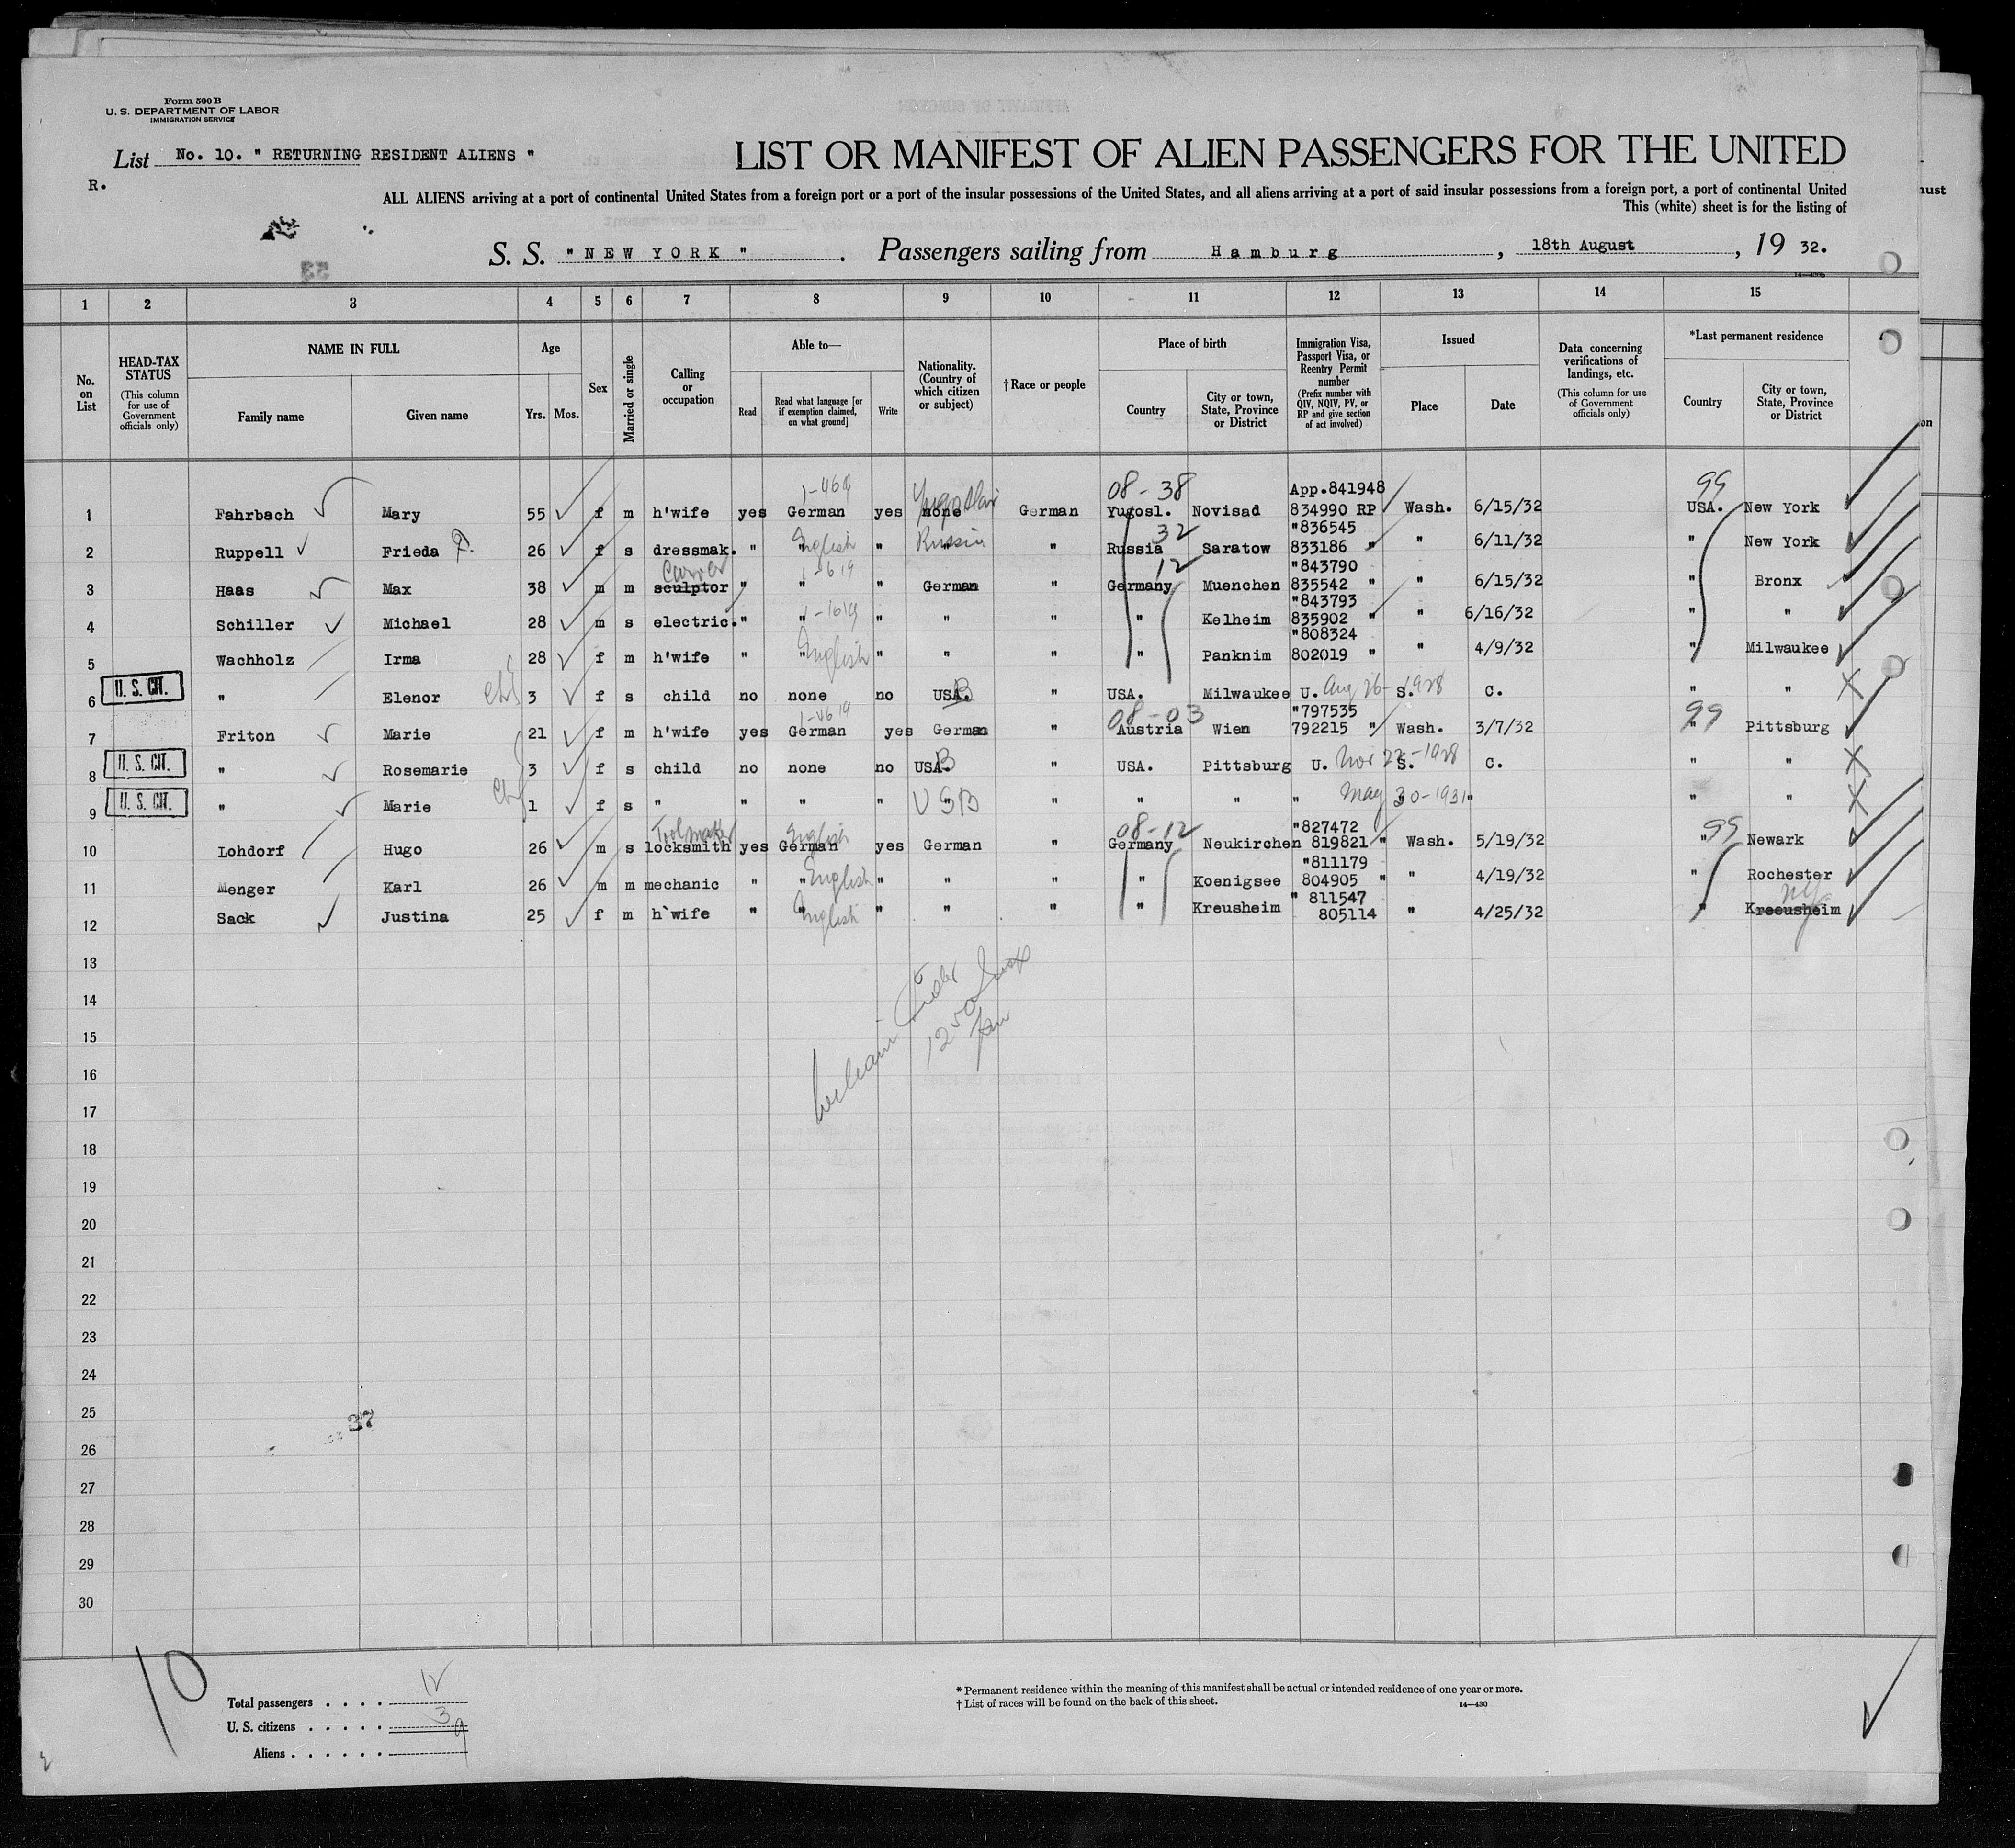 Form 500 B
U. S. DEPARTMENT OF LABOR
IMMIGRATION SERVICE
List No. 10. " RETURNING RESIDENT ALIENS "
R.
LIST OR MANIFEST OF ALIEN PASSENGERS FOR THE UNITED
ALL ALIENS arriving at a port of continental United States from a foreign port or a port of the insular possessions of the United States, and all aliens arriving at a port of said insular possessions from a foreign port, a port of continental United
This (white) sheet is for the listing of
S. S. " NEW YORK " . Passengers sailing from Hamburg , 18th August , 19 32.
53
1 2 3 4 5 6 7 8 9 10 11 12 13 14 15
No. on List
HEAD-TAX STATUS
(This column for use of Government officials only)
NAME IN FULL
Family name Given name
Age
Yrs. Mos.
Sex
Married or single
Calling or occupation
Able to—
Read Read what language [or if exemption claimed, on what ground] Write
Nationality. (Country of which citizen or subject)
†Race or people
Place of birth
Country City or town, State, Province or District
Immigration Visa, Passport Visa, or Reentry Permit number
(Prefix number with QIV, NQIV, PV, or RP and give section of act involved)
Issued
Place Date
Data concerning verifications of landings, etc.
(This column for use of Government officials only)
*Last permanent residence
Country City or town, State, Province or District
1-464 Yugoslav 08-38 App.841948 99
1 Fahrbach Mary 55 f m h'wife yes German yes none German Yugosl. Novisad 834990 RP Wash. 6/15/32 USA. New York
English Russia 32 "836545
2 Ruppell Frieda 26 f s dressmak. " " " " " Russia Saratow 833186 " " 6/11/32 " New York
Carver 1-619 12 "843790
3 Haas Max 38 m m sculptor " " " German " Germany Muenchen 835542 " " 6/15/32 " Bronx
1-1619 "843793
4 Schiller Michael 28 m s electric. " " " " " " Kelheim 835902 " " 6/16/32 " "
English "808324
5 Wachholz Irma 28 f m h'wife " " " " " " Panknim 802019 " " 4/9/32 " Milwaukee
U. S. CIT.
6 " Elenor 3 f s child no none no USA. B " USA. Milwaukee U. Aug 26- S. 1928 C. " "
08-03 "797535 99
7 Friton Marie 21 f m h'wife yes German yes German " Austria Wien 792215 " Wash. 3/7/32 " Pittsburg
U. S. CIT.
8 " Rosemarie 3 f s child no none no USA. B " USA. Pittsburg U. Nov 22- S. 1928 C. " "
U. S. CIT.
9 " Marie 1 f s " " " " USB " " " " May 30-1931 " " "
Toolmaker English 08-12 "827472 99
10 Lohdorf Hugo 26 m s locksmith yes German yes German " Germany Neukirchen 819821 " Wash. 5/19/32 " Newark
English "811179
11 Menger Karl 26 m m mechanic " " " " " " Koenigsee 804905 " " 4/19/32 " Rochester
English " 811547 NY
12 Sack Justina 25 f m h`wife " " " " " " Kreusheim 805114 " 4/25/32 " Kreeusheim
13
14
15
16
17
18
19
20
21
22
23
24
25
37
26
27
28
29
30
10
Total passengers . . . . 12
U. S. citizens . . . . . 3
Aliens . . . . . . 9
* Permanent residence within the meaning of this manifest shall be actual or intended residence of one year or more.
† List of races will be found on the back of this sheet.
14—430